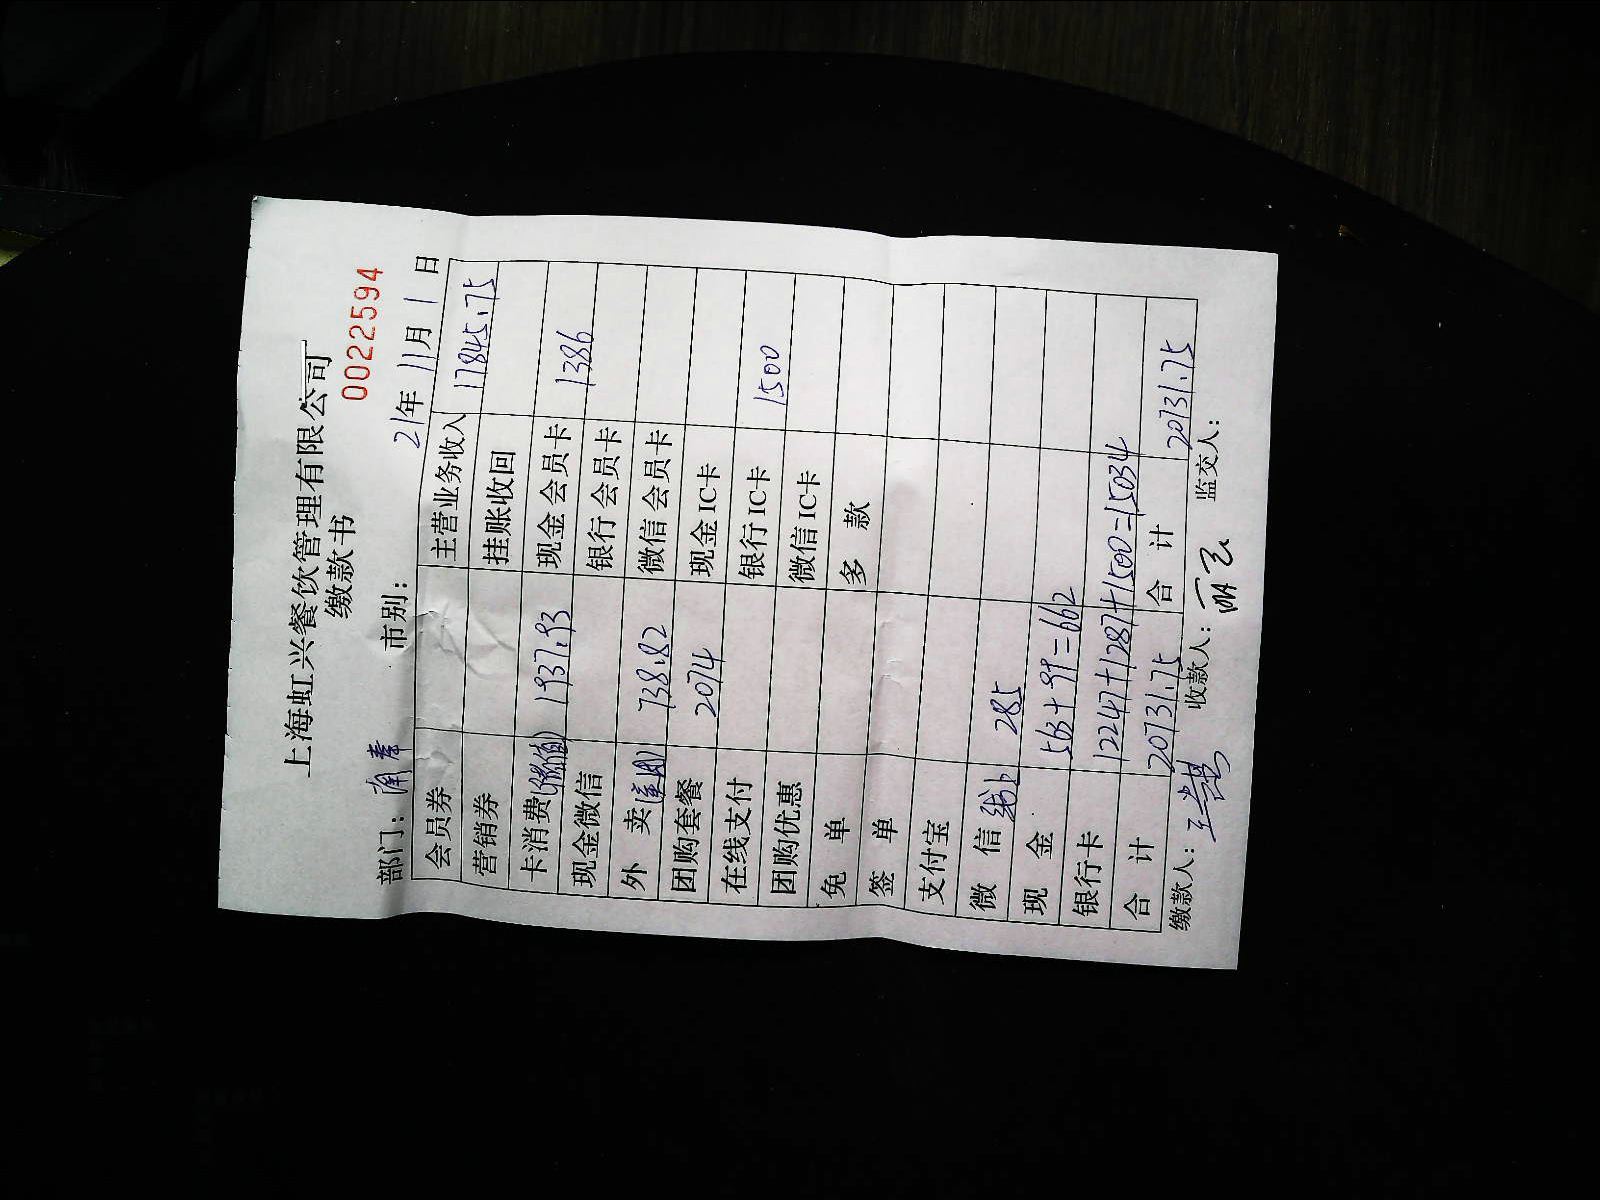 上海虹兴餐饮管理有限公司
缴款书
0022594
部门： 市别： 21年 11月 1日
会员券 主营业务收入 17845.75
营销券 挂账收回
卡消费(储值) 1937.93 现金会员卡 1386
现金微信 银行会员卡
外 卖 738.82 微信会员卡
团购套餐 2074 现金IC卡
在线支付 银行IC卡 1500
团购优惠 微信IC卡
免 单 多 款
签 单
支付宝
微 信 285
现 金 563+99=662
银行卡 12247+1287+1500=15034
合 计 20731.75 合 计 20731.75
缴款人： 收款人： 监交人：